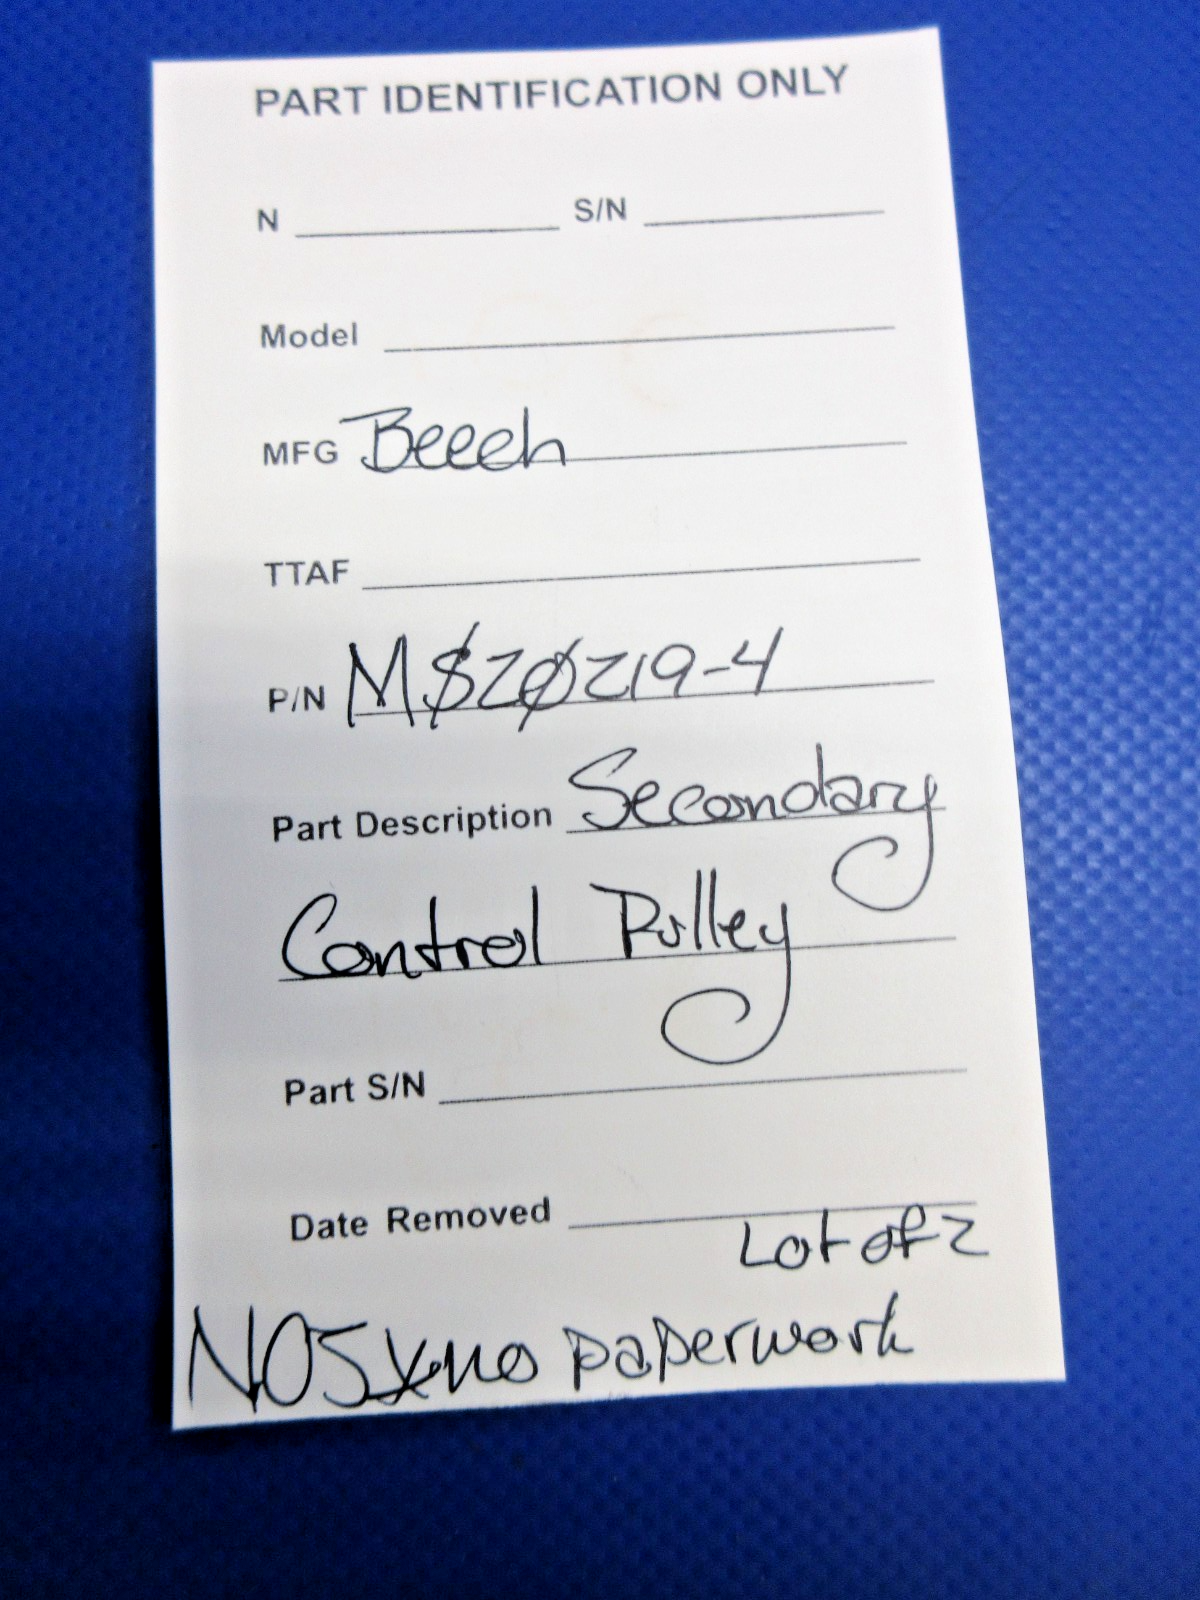 PART IDENTIFICATION ONLY
N S/N
Model
MFG Beech
TTAF
P/N MS20219-4
Part Description Secondary
Control Pulley
Part S/N
Date Removed
Lot of 2
NOS no paperwork